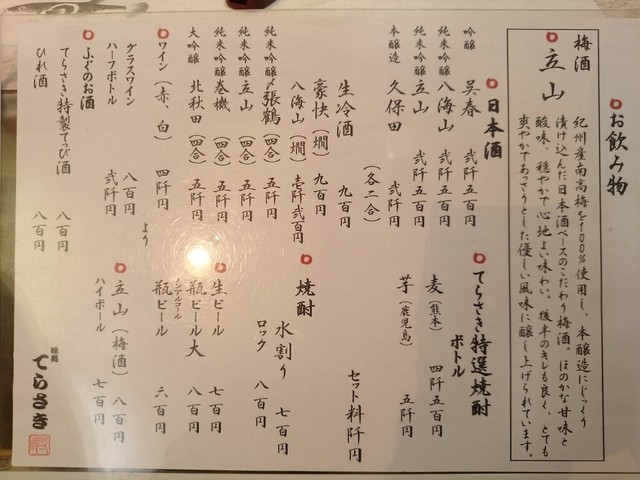 お飲み物
梅酒
立山
紀州産南高梅を100%使用し、本醸造にじっくり
漬け込んだ日本酒ベースのこだわり梅酒。ほのかな甘味と
酸味、穏やかで心地よい味わい。後半のキレも良く、とても
爽やかであっさりとした優しい風味に醸し上げられています。
日本酒
吟醸 呉春 弐阡五百円
純米吟醸 八海山 弐阡五百円
純米吟醸 立山 弐阡五百円
本醸造 久保田 弐阡円
(各二合)
生冷酒 九百円
豪快(燗) 九百円
八海山(燗) 壱阡弐百円
純米吟醸 〆張鶴(四合) 五阡円
純米吟醸 立山(四合) 五阡円
純米吟醸 巻機(四合) 五阡円
大吟醸 北秋田(四合) 五阡円
ワイン(赤、白) 四阡円
より
グラスワイン 八百円
ハーフボトル 弐阡円
ふぐのお酒
てらさき特製てっぴ酒 八百円
ひれ酒 八百円
てらさき特選焼酎
ボトル
麦(熊本) 四阡五百円
芋(鹿児島) 五阡円
セット料阡円
焼酎
水割り 七百円
ロック 八百円
生ビール 七百円
瓶ビール大 八百円
ノンアルコール
瓶ビール 六百円
立山(梅酒) 八百円
ハイボール 七百円
てらさき